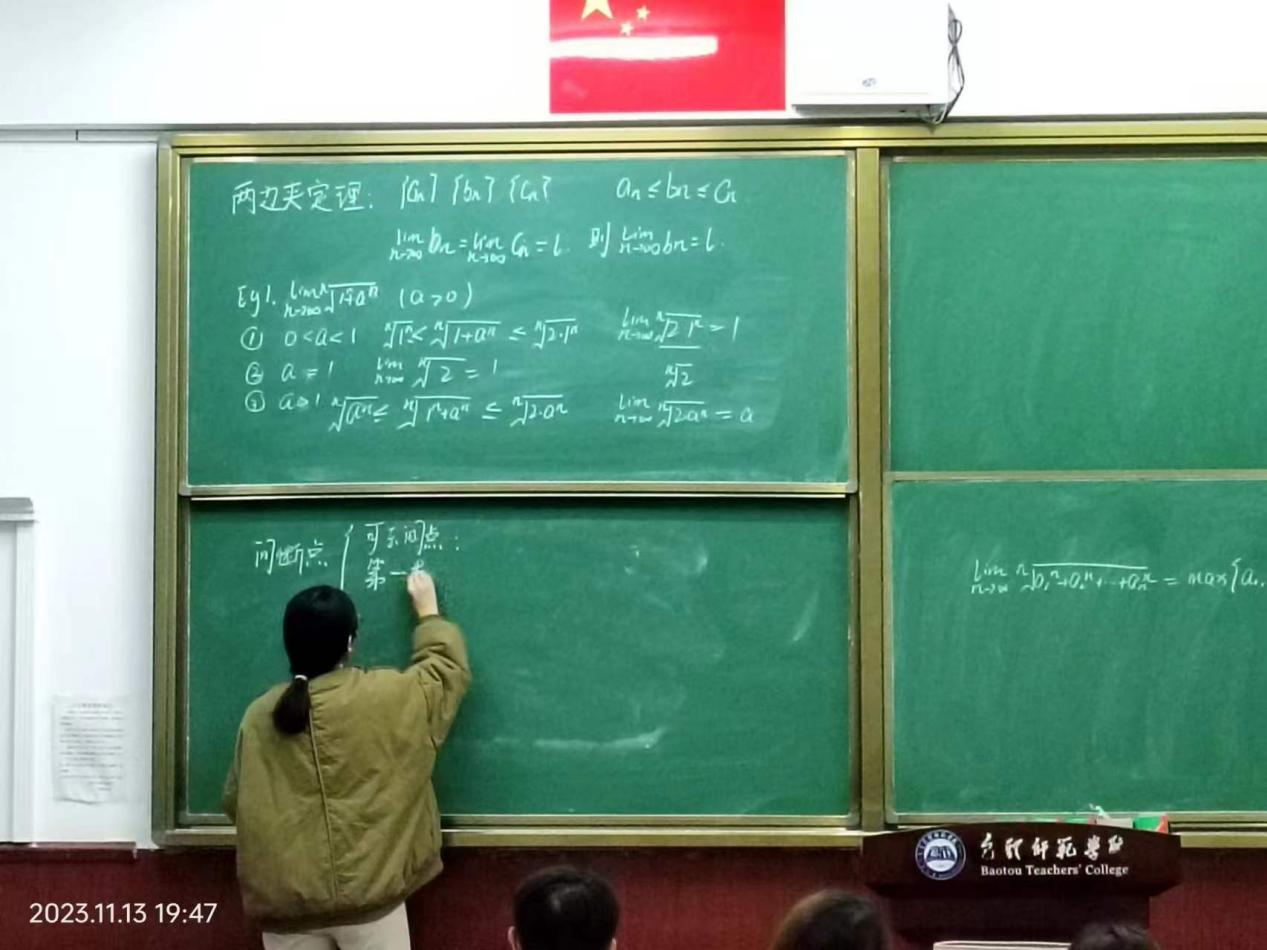 两边夹定理: {aₙ} {bₙ} {cₙ} aₙ ≤ bₙ ≤ cₙ
lim n→∞ bₙ = lim n→∞ cₙ = l. 则 lim n→∞ bₙ = l.
Eg1. lim n→∞ ⁿ√(1+aⁿ) (a>0)
① 0<a<1 ⁿ√(1ⁿ) < ⁿ√(1+aⁿ) ≤ ⁿ√(2·1ⁿ) lim n→∞ ⁿ√(2·1ⁿ) = 1
② a=1 lim n→∞ ⁿ√2 = 1 ⁿ√2
③ a>1 ⁿ√(aⁿ) ≤ ⁿ√(1ⁿ+aⁿ) ≤ ⁿ√(2·aⁿ) lim n→∞ ⁿ√(2aⁿ) = a
间断点 { 可去间点:
第一
lim n→∞ ⁿ√(a₁ⁿ+a₂ⁿ+…+aₙⁿ) = max{a₁,
包头师范学院
Baotou Teachers' College
2023.11.13 19:47